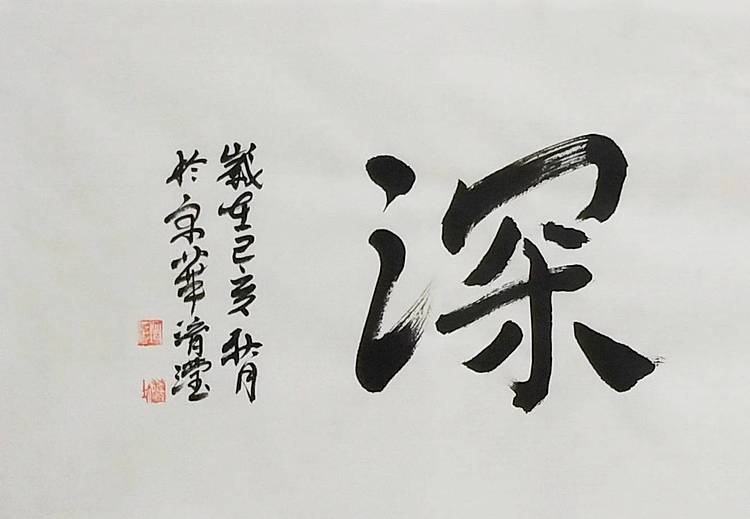 深
歲在己亥秋月
於京華清